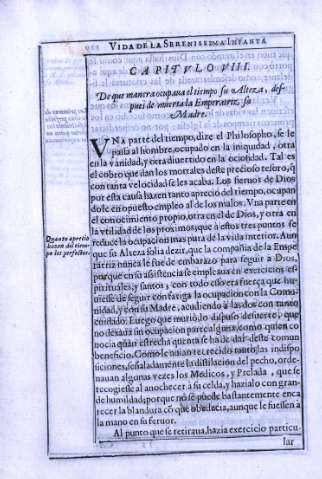 VIDA DE LA SERENISSIMA INFANTA
CAPITVLO VIII.
De que manera ocupaua el tiempo su Alteza, des-
pues de muerta la Emperatriz, su
Madre.
VNa parte del tiempo, dize el Philosopho, se le
passa al hombre, ocupado en la iniquidad, otra
en la vanidad, y otra diuertido en la ociosidad. Tal es
el cobro que dan los mortales deste precioso tesoro, q̃
con tanta velocidad se les acaba. Los sieruos de Dios
por esta causa hazen tanto aprecio del tiempo, ocupan
dole en opuesto empleo al de los malos. Vna parte en
el conocimiento propio, otra en el de Dios, y otra en
la vtilidad de los proximos, que à estos tres puntos se
reduce la ocupacion mas pura de la vida interior. Aun
Quanto aprecio
hazen del tiem-
po los perfectos.
que su Alteza solia dezir, que la compañia de la Empe
ratriz nunca le fue de embarazo para seguir a Dios,
porque en su asistencia se empleaua en exercicios es-
pirituales, y santos, y con todo esso era fuerça que hu-
uiesse de seguir con fatiga la ocupacion con la Comu-
nidad, y con su Madre, acudiendo à las dos con tanto
cuidado. Luego que murio, lo dispuso de suerte, que
no dexaua sin ocupacion parte alguna, como quien co
nocia quan estrecha quenta se ha de dar deste comun
beneficio. Como le auian recrecido tantas indispo
siciones, señaladamente la distilacion del pecho, orde-
nauan algunas vezes los Medicos, y Prelada, que se
recogiesse al anochecer à su celda, y hazialo con gran-
de humildad, porque no se puede bastantemente enca
recer la blandura cō que obedecia, aunque le fuessen à
la mano en su feruor.
Al punto que se retiraua, hazia exercicio particu-
lar